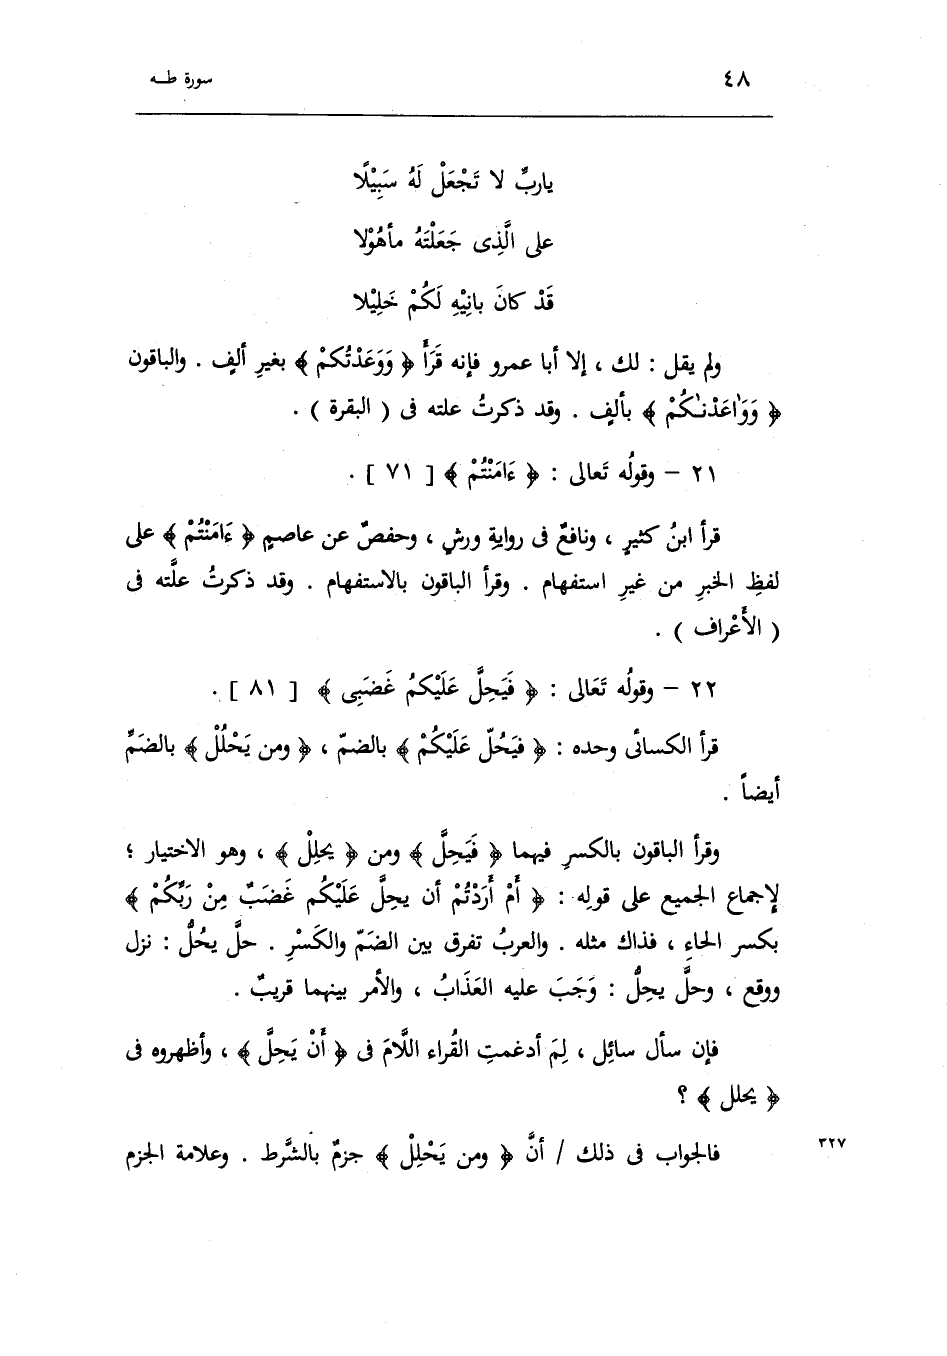 ٤٨ سورة طــه
ياربِّ لا تَجْعَلْ لَهُ سَبِيْلًا
على الَّذِى جَعَلْتَهُ مأهُوْلا
قَدْ كانَ بانِيْهِ لَكُمْ خَلِيْلا
ولم يقل : لك ، إلا أبا عمرو فإنه قَرَأَ ﴿ وَوَعَدْتُكمْ ﴾ بغيرِ ألفٍ . والباقون
﴿ وَوَٰاعَدْنـٰكُمْ ﴾ بألفٍ . وقد ذكرتُ علته فى ( البقرة ) .
٢١ – وقولُه تَعالى : ﴿ ءَامَنْتُمْ ﴾ [ ٧١ ] .
قرأ ابنُ كثيرٍ ، ونافعٌ فى روايةِ ورشٍ ، وحفصٌ عن عاصمٍ ﴿ ءَامَنْتُمْ ﴾ على
لفظِ الخبرِ من غيرِ استفهام . وقرأ الباقون بالاستفهام . وقد ذكرتُ علَّته فى
( الأَعْراف ) .
٢٢ – وقولُه تَعَالى : ﴿ فَيَحِلَّ عَلَيْكمُ غَضَبِى ﴾ [ ٨١ ] .
قرأ الكسائى وحده : ﴿ فيَحُلّ عَلَيْكُمْ ﴾ بالضمّ ، ﴿ ومن يَحْلُلْ ﴾ بالضَمِّ
أيضاً .
وقرأ الباقون بالكسرِ فيهما ﴿ فَيَحِلَّ ﴾ ومن ﴿ يحلِلْ ﴾ ، وهو الاختيار ؛
لإجماع الجميع على قولِه : ﴿ أَمْ أَرَدْتُمْ أن يحِلَّ عَلَيْكُم غَضَبٌ مِنْ رَبِّكُمْ ﴾
بكسر الحاءِ ، فذاك مثله . والعربُ تفرق بين الضَمّ والكَسْرِ . حلَّ يحُلُّ : نزل
ووقع ، وحلَّ يحِلُّ : وَجَبَ عليه العَذَابُ ، والأمر بينهما قريبٌ .
فإن سأل سائِل ، لِمَ أدغمتِ القُراء اللَّامَ فى ﴿ أَنْ يَحِلَّ ﴾ ، وأظهروه فى
﴿ يحلل ﴾ ؟
فالجواب فى ذلك / أنَّ ﴿ ومن يَحْلِلْ ﴾ جزمٌ بالشَّرط . وعلامة الجزم ٣٢٧